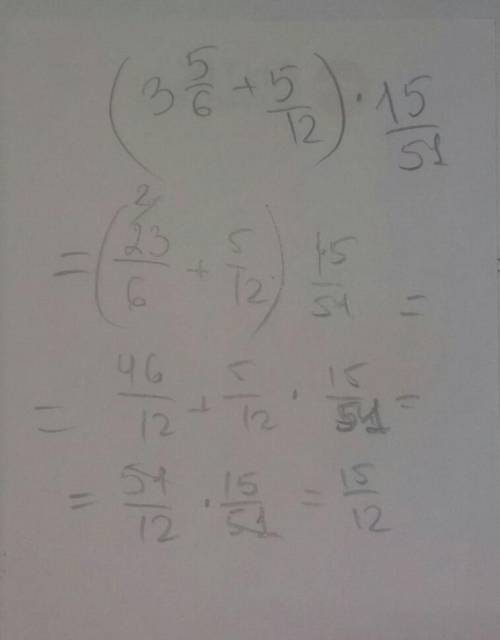 (3 5/6 + 5/12) · 15/51
= (23/6 + 5/12) 15/51 =
= 46/12 + 5/12 · 15/51 =
= 51/12 · 15/51 = 15/12